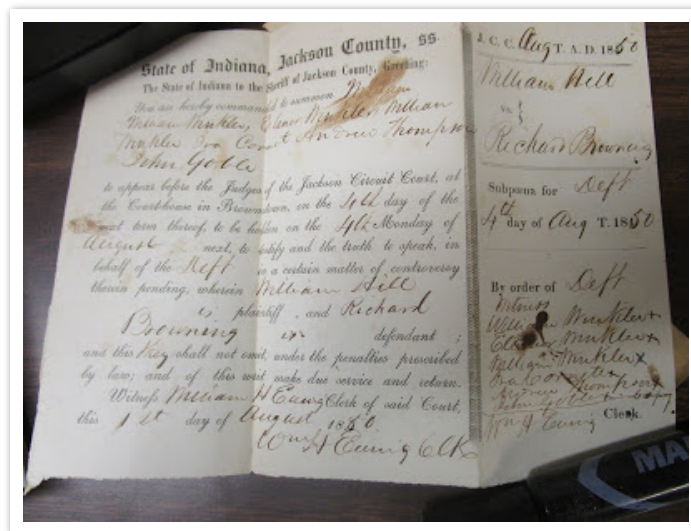 State of Indiana, Jackson County, ss.
The State of Indiana to the Sheriff of Jackson County, Greeting:
You are hereby commanded to summon
William Winkler, Eleanor Winkler, William
Winkler Andrew Thompson
John Goble
to appear before the Judges of the Jackson Circuit Court, at
the Courthouse in Brownstown, on the 4th day of the
next term thereof, to be holden on the 4th Monday of
August next, to testify and the truth to speak, in
behalf of the Deft in a certain matter of controversy
therein pending, wherein William Hill
is plaintiff, and Richard
Browning is defendant;
and this they shall not omit, under the penalties prescribed
by law; and of this writ make due service and return.
Witness William H Ewing Clerk of said Court,
this 1st day of August 1850
Wm H Ewing Clk
J. C. C. Aug T. A. D. 1850
William Hill
vs.
Richard Browning
Subpœna for Deft
4th day of Aug T. 1850
By order of Deft
Witness
William Winkler x
Eleanor Winkler x
William Winkler x
Andrew Thompson x
Wm H Ewing Clerk.
MA